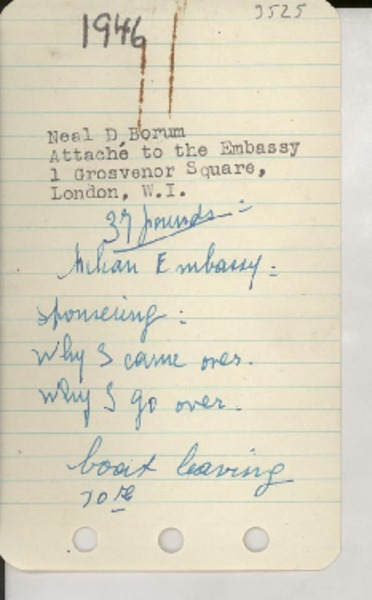 1946
3525
Neal D. Borum
Attaché to the Embassy
1 Grosvenor Square,
London, W.I.
37 pounds :
Embassy :
sponsering :
Why I came over.
Why I go over.
boat leaving